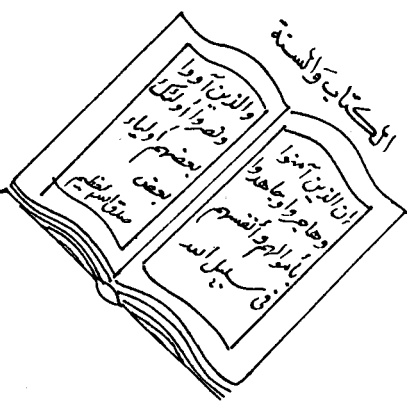 الكتاب والسنة
إن الذين آمنوا
وهاجروا وجاهدوا
بأموالهم وأنفسهم
في سبيل الله
والذين آووا
ونصروا أولئك
بعضهم أولياء
بعض
صدق الله العظيم